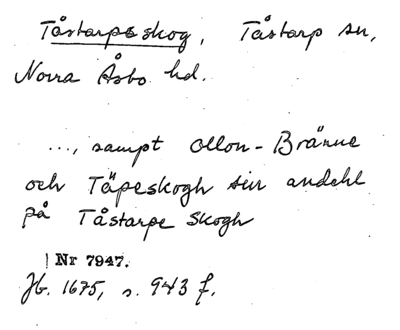 Tåstarpeskog, Tåstarp sn,
Norra Åsbo hd.
..., sampt Ollon-Bränne
och Täpeskogh sin andehl
på Tåstarpe Skogh
Nr 7947.
Jb. 1675, s. 943 f.